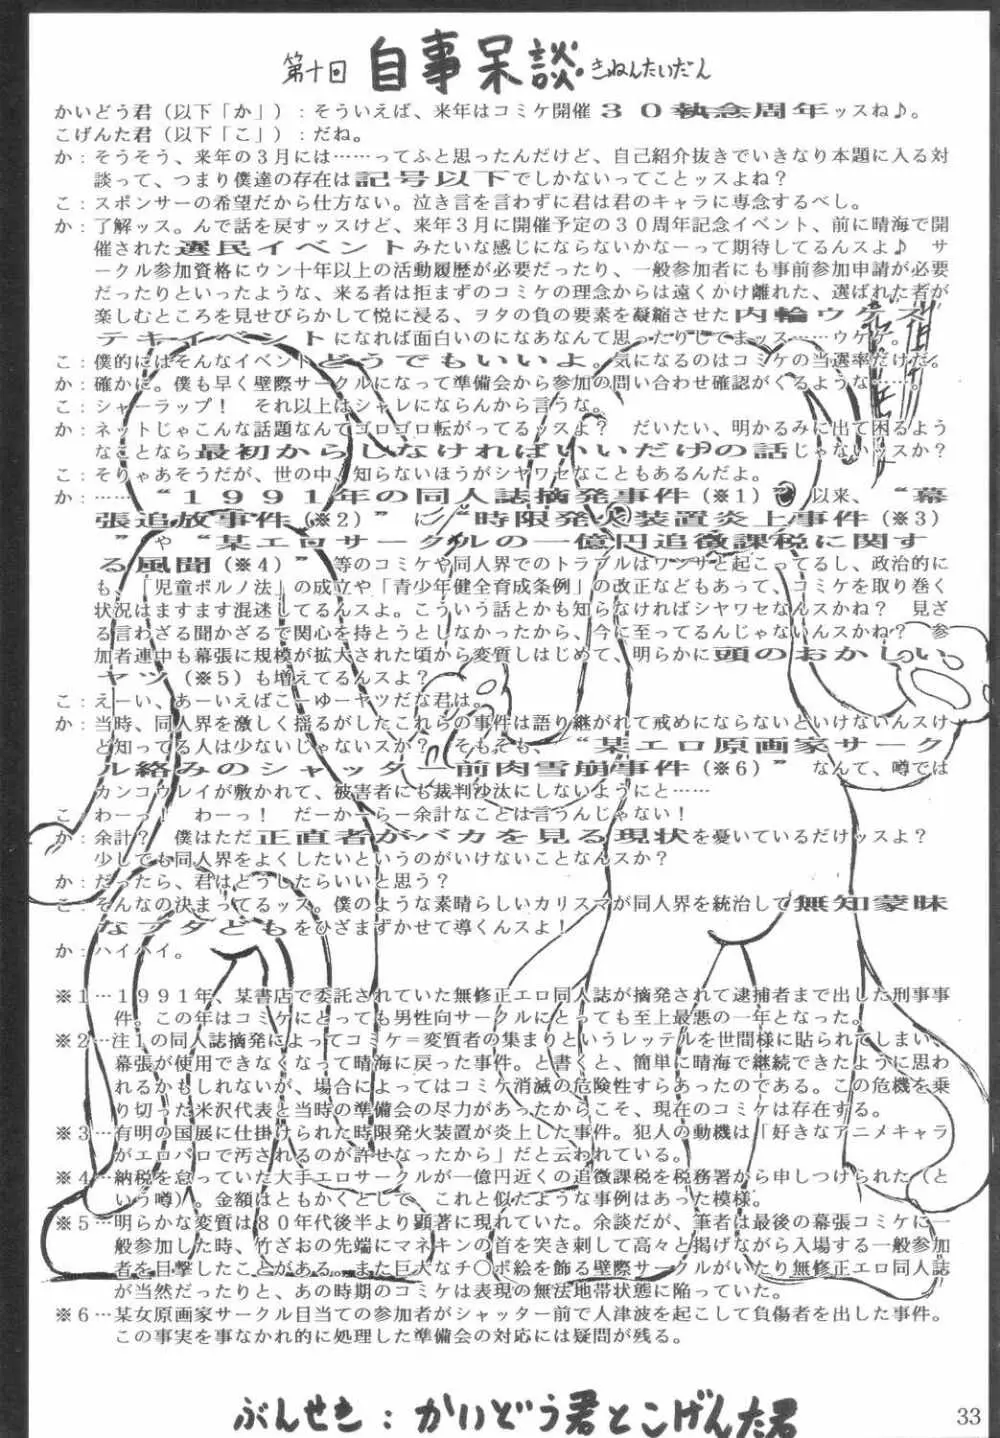 第十回 自事呆談 きねんたいだん
かいどう君(以下「か」):そういえば、来年はコミケ開催３０執念周年ッスね♪。
こげんた君(以下「こ」):だね。
か:そうそう、来年の３月には……ってふと思ったんだけど、自己紹介抜きでいきなり本題に入る対
談って、つまり僕達の存在は記号以下でしかないってことッスよね？
こ:スポンサーの希望だから仕方ない。泣き言を言わずに君は君のキャラに専念するべし。
か:了解ッス。んで話を戻すッスけど、来年３月に開催予定の３０周年記念イベント、前に晴海で開
催された選民イベントみたいな感じにならないかなーって期待してるんスよ♪　サ
ークル参加資格にウン十年以上の活動履歴が必要だったり、一般参加者にも事前参加申請が必要
だったりといったような、来る者は拒まずのコミケの理念からは遠くかけ離れた、選ばれた者が
楽しむところを見せびらかして悦に浸る、ヲタの負の要素を凝縮させた内輪ウケス
テキイベントになれば面白いのになあなんて思ったりしてまッス……ウケケ。
こ:僕的にはそんなイベントどうでもいいよ。気になるのはコミケの当選率だけだ。
か:確かに。僕も早く壁際サークルになって準備会から参加の問い合わせ確認がくるような……。
こ:シャーラップ！　それ以上はシャレにならんから言うな。
か:ネットじゃこんな話題なんてゴロゴロ転がってるッスよ？　だいたい、明かるみに出て困るよう
なことなら最初からしなければいいだけの話じゃないッスか？
こ:そりゃあそうだが、世の中、知らないほうがシヤワセなこともあるんだよ。
か:……“１９９１年の同人誌摘発事件(※１)”以来、“幕
張追放事件(※２)”に“時限発火装置炎上事件(※３)
”や“某エロサークルの一億円追徴課税に関す
る風聞(※４)”等のコミケや同人界でのトラブルはワンサと起こってるし、政治的に
も、「児童ポルノ法」の成立や「青少年健全育成条例」の改正などもあって、コミケを取り巻く
状況はますます混迷してるんスよ。こういう話とかも知らなければシヤワセなんスかね？　見ざ
る言わざる聞かざるで関心を持とうとしなかったから、今に至ってるんじゃないんスかね？　参
加者連中も幕張に規模が拡大された頃から変質しはじめて、明らかに頭のおかしい
ヤツ(※５)も増えてるんスよ？
こ:えーい、あーいえばこーゆーヤツだな君は。
か:当時、同人界を激しく揺るがしたこれらの事件は語り継がれて戒めにならないといけないんスけ
ど知ってる人は少ないじゃないスか？　そもそも、“某エロ原画家サーク
ル絡みのシャッター前肉雪崩事件(※６)”なんて、噂では
カンコウレイが敷かれて、被害者にも裁判沙汰にしないようにと……
こ:わーっ！　わーっ！　だーかーらー余計なことは言うんじゃない！
か:余計？　僕はただ正直者がバカを見る現状を憂いているだけッスよ？
少しでも同人界をよくしたいというのがいけないことなんスか？
か:だったら、君はどうしたらいいと思う？
こ:そんなの決まってるッス。僕のような素晴らしいカリスマが同人界を統治して無知蒙昧
なブタどもをひざまずかせて導くんスよ！
か:ハイハイ。
※１…１９９１年、某書店で委託されていた無修正エロ同人誌が摘発されて逮捕者まで出した刑事事
件。この年はコミケにとっても男性向サークルにとっても至上最悪の一年となった。
※２…注１の同人誌摘発によってコミケ＝変質者の集まりというレッテルを世間様に貼られてしまい、
幕張が使用できなくなって晴海に戻った事件。と書くと、簡単に晴海で継続できたように思わ
れるかもしれないが、場合によってはコミケ消滅の危険性すらあったのである。この危機を乗
り切った米沢代表と当時の準備会の尽力があったからこそ、現在のコミケは存在する。
※３…有明の国展に仕掛けられた時限発火装置が炎上した事件。犯人の動機は「好きなアニメキャラ
がエロパロで汚されるのが許せなったから」だと云われている。
※４…納税を怠っていた大手エロサークルが一億円近くの追徴課税を税務署から申しつけられた（と
いう噂）。金額はともかくとして、これと似たような事例はあった模様。
※５…明らかな変質は８０年代後半より顕著に現れていた。余談だが、筆者は最後の幕張コミケに一
般参加した時、竹ざおの先端にマネキンの首を突き刺して高々と掲げながら入場する一般参加
者を目撃したことがある。また巨大なチ〇ポ絵を飾る壁際サークルがいたり無修正エロ同人誌
が当然だったりと、あの時期のコミケは表現の無法地帯状態に陥っていた。
※６…某女原画家サークル目当ての参加者がシャッター前で人津波を起こして負傷者を出した事件。
この事実を事なかれ的に処理した準備会の対応には疑問が残る。
ぶんせき：かいどう君とこげんた君
33